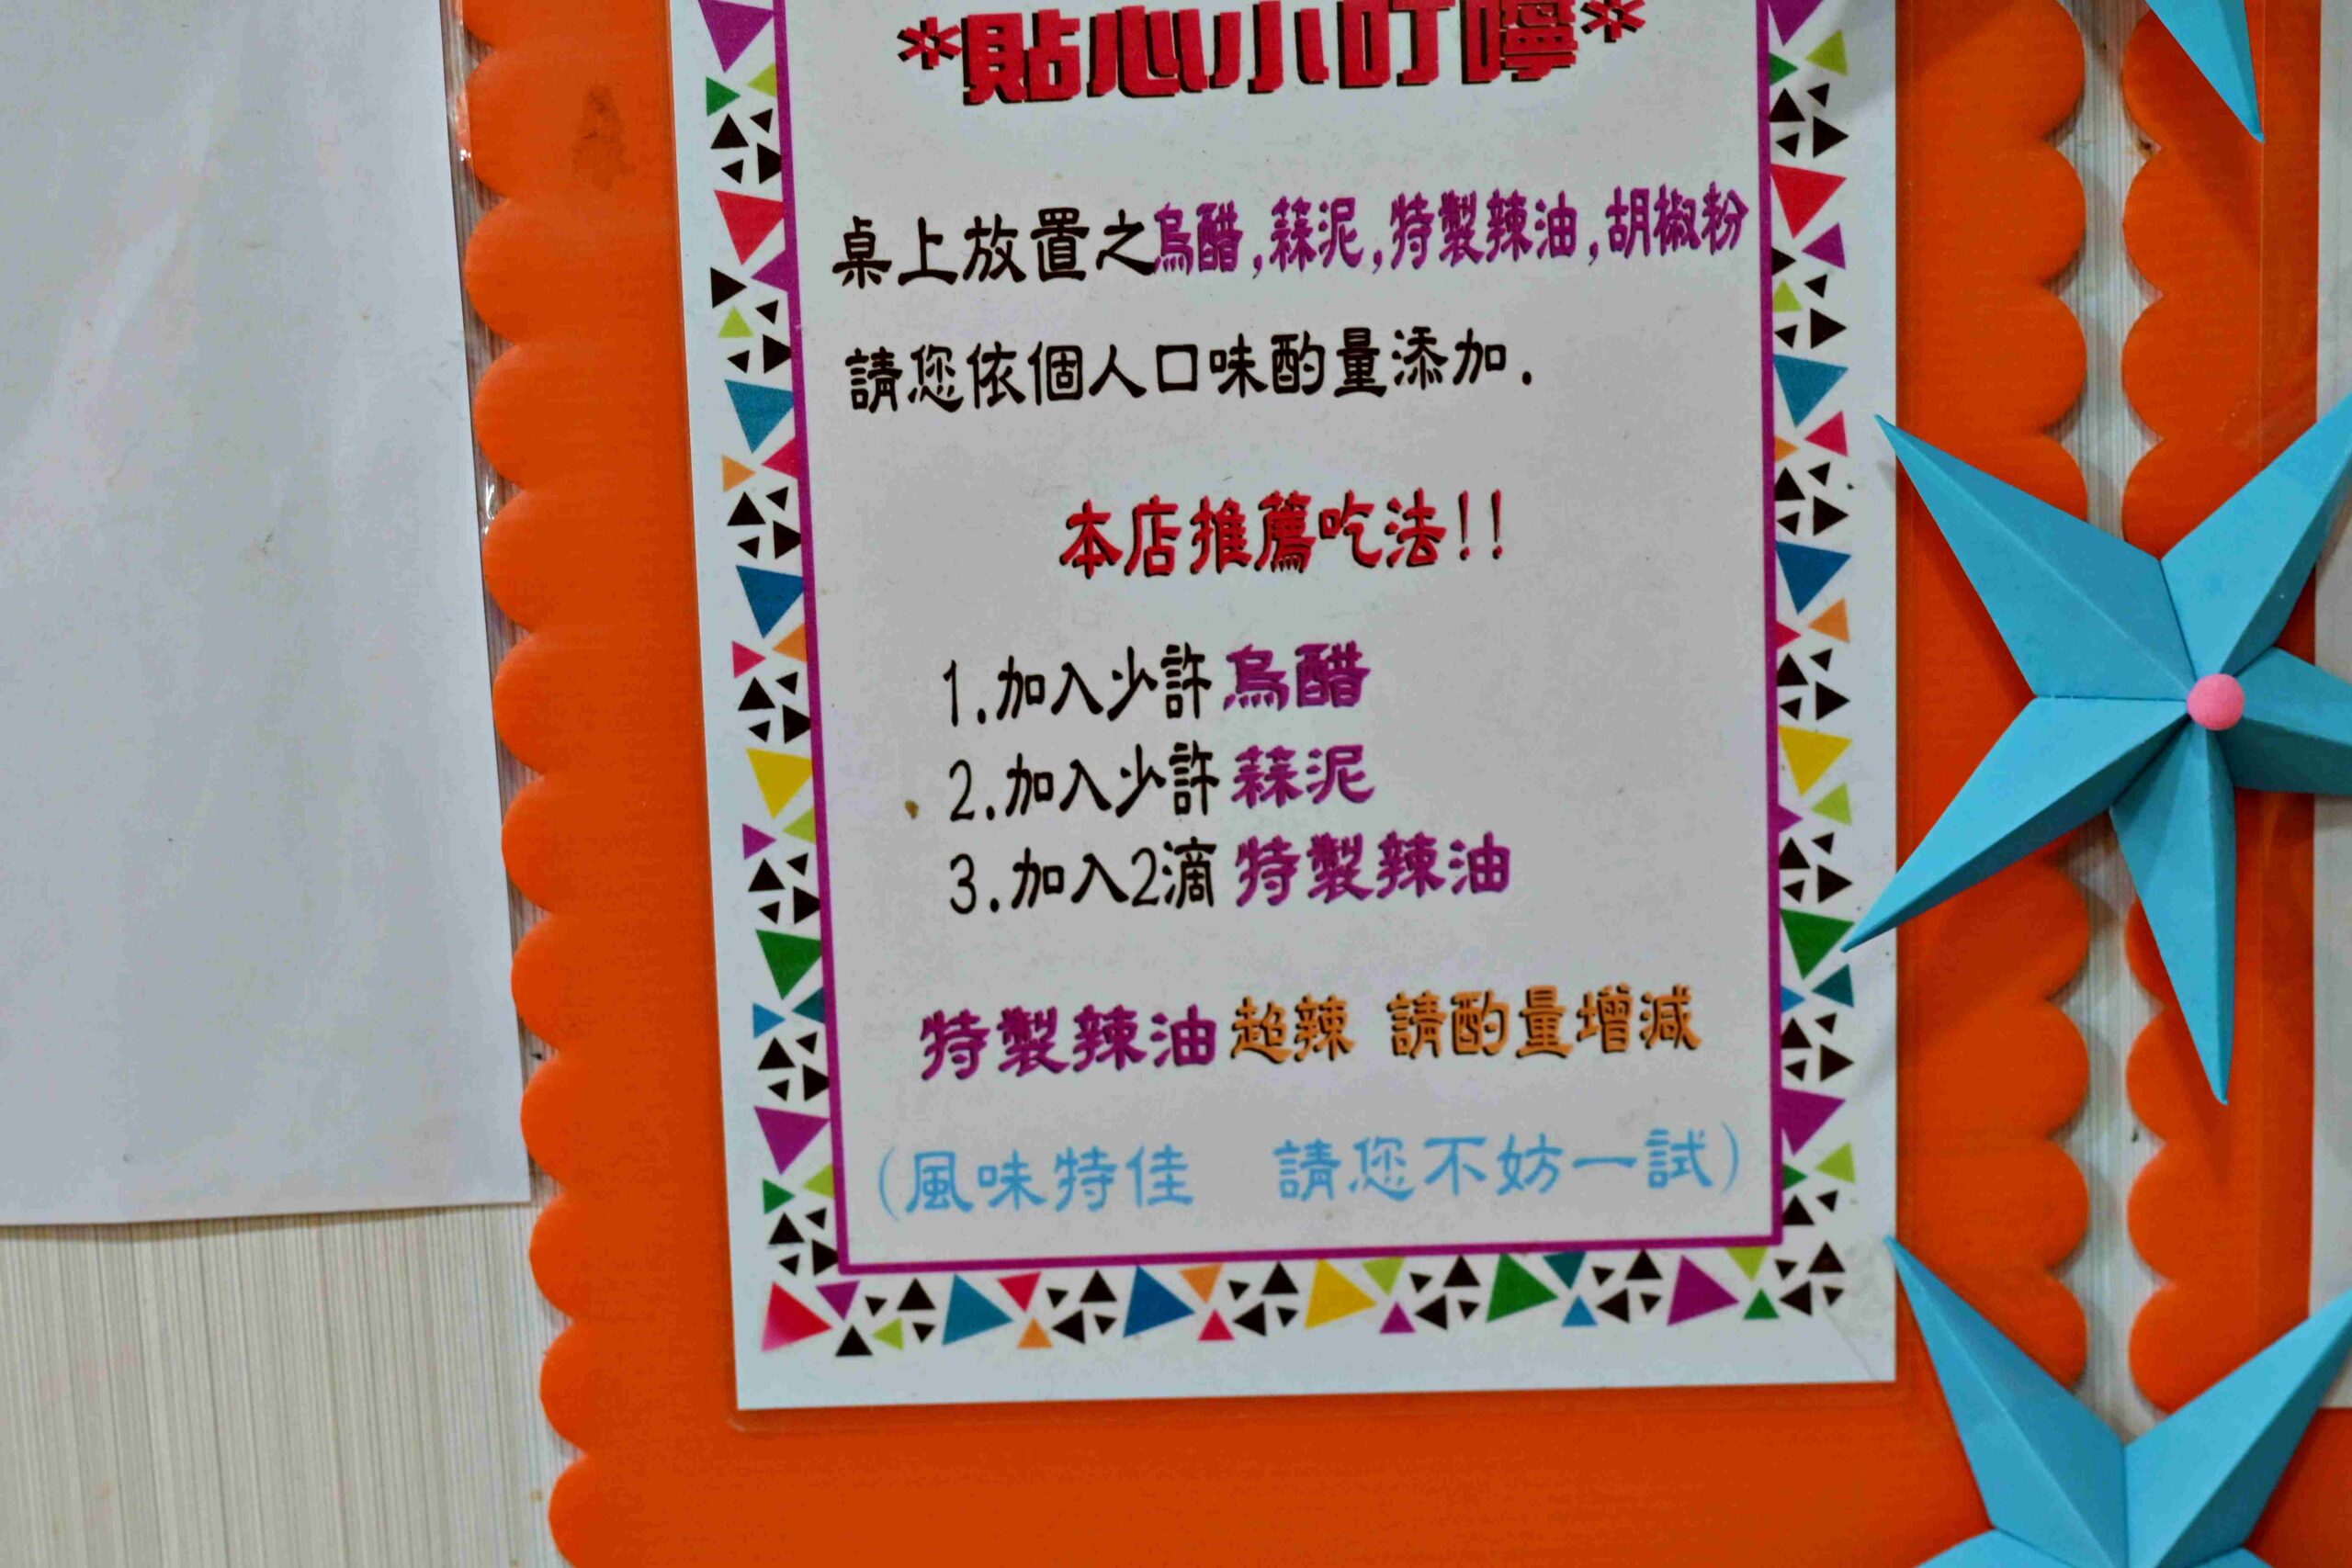 *貼心小叮嚀*
桌上放置之烏醋,蒜泥,特製辣油,胡椒粉
請您依個人口味酌量添加.
本店推薦吃法!!
1.加入少許烏醋
2.加入少許蒜泥
3.加入2滴特製辣油
特製辣油超辣 請酌量增減
(風味特佳 請您不妨一試)